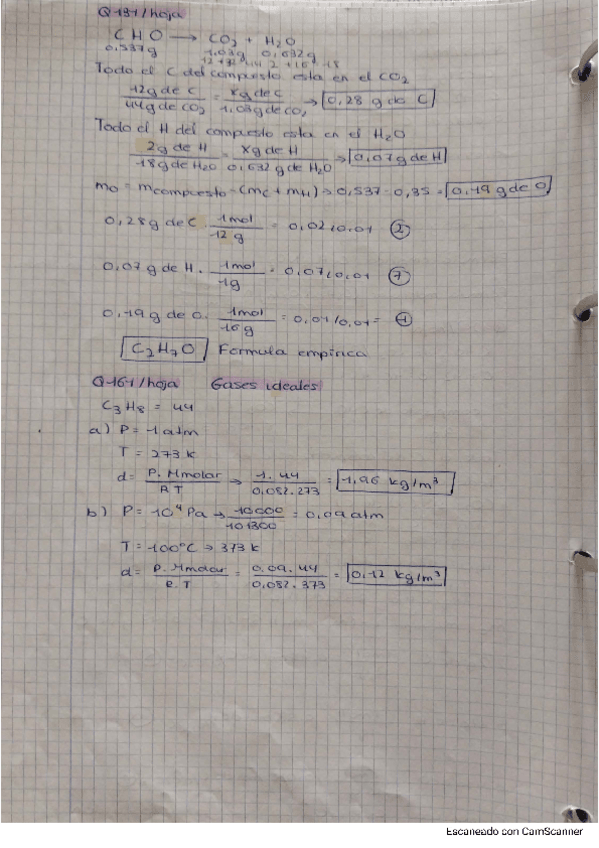 Q131/hoja
C H O → CO2 + H2O
0,537g 1,03g 0,632g
12+32=44 2+16=18
Todo el C del compuesto esta en el CO2
12g de C / 44g de CO2 = xg de C / 1,03g de CO2 → 0,28 g de C
Todo el H del compuesto esta en el H2O
2g de H / 18g de H2O = xg de H / 0,632 g de H2O → 0,07g de H
mO = mcompuesto - (mC + mH) → 0,537 - 0,35 = 0,19g de O
0,28g de C · 1mol / 12g = 0,02/0,01 2
0,07g de H · 1mol / 1g = 0,07/0,01 7
0,19g de O · 1mol / 16g = 0,01/0,01 = 1
C2H7O Formula empírica
Q161/hoja Gases ideales
C3H8 = 44
a) P = 1atm
T = 273 k
d = P. Mmolar / RT → 1. 44 / 0,082.273 = 1,96 kg/m³
b) P = 10⁴ Pa → 10000 / 101300 = 0,09 atm
T = 100°C → 373 k
d = P. Mmolar / R.T = 0,09. 44 / 0,082. 373 = 0,12 kg/m³
Escaneado con CamScanner